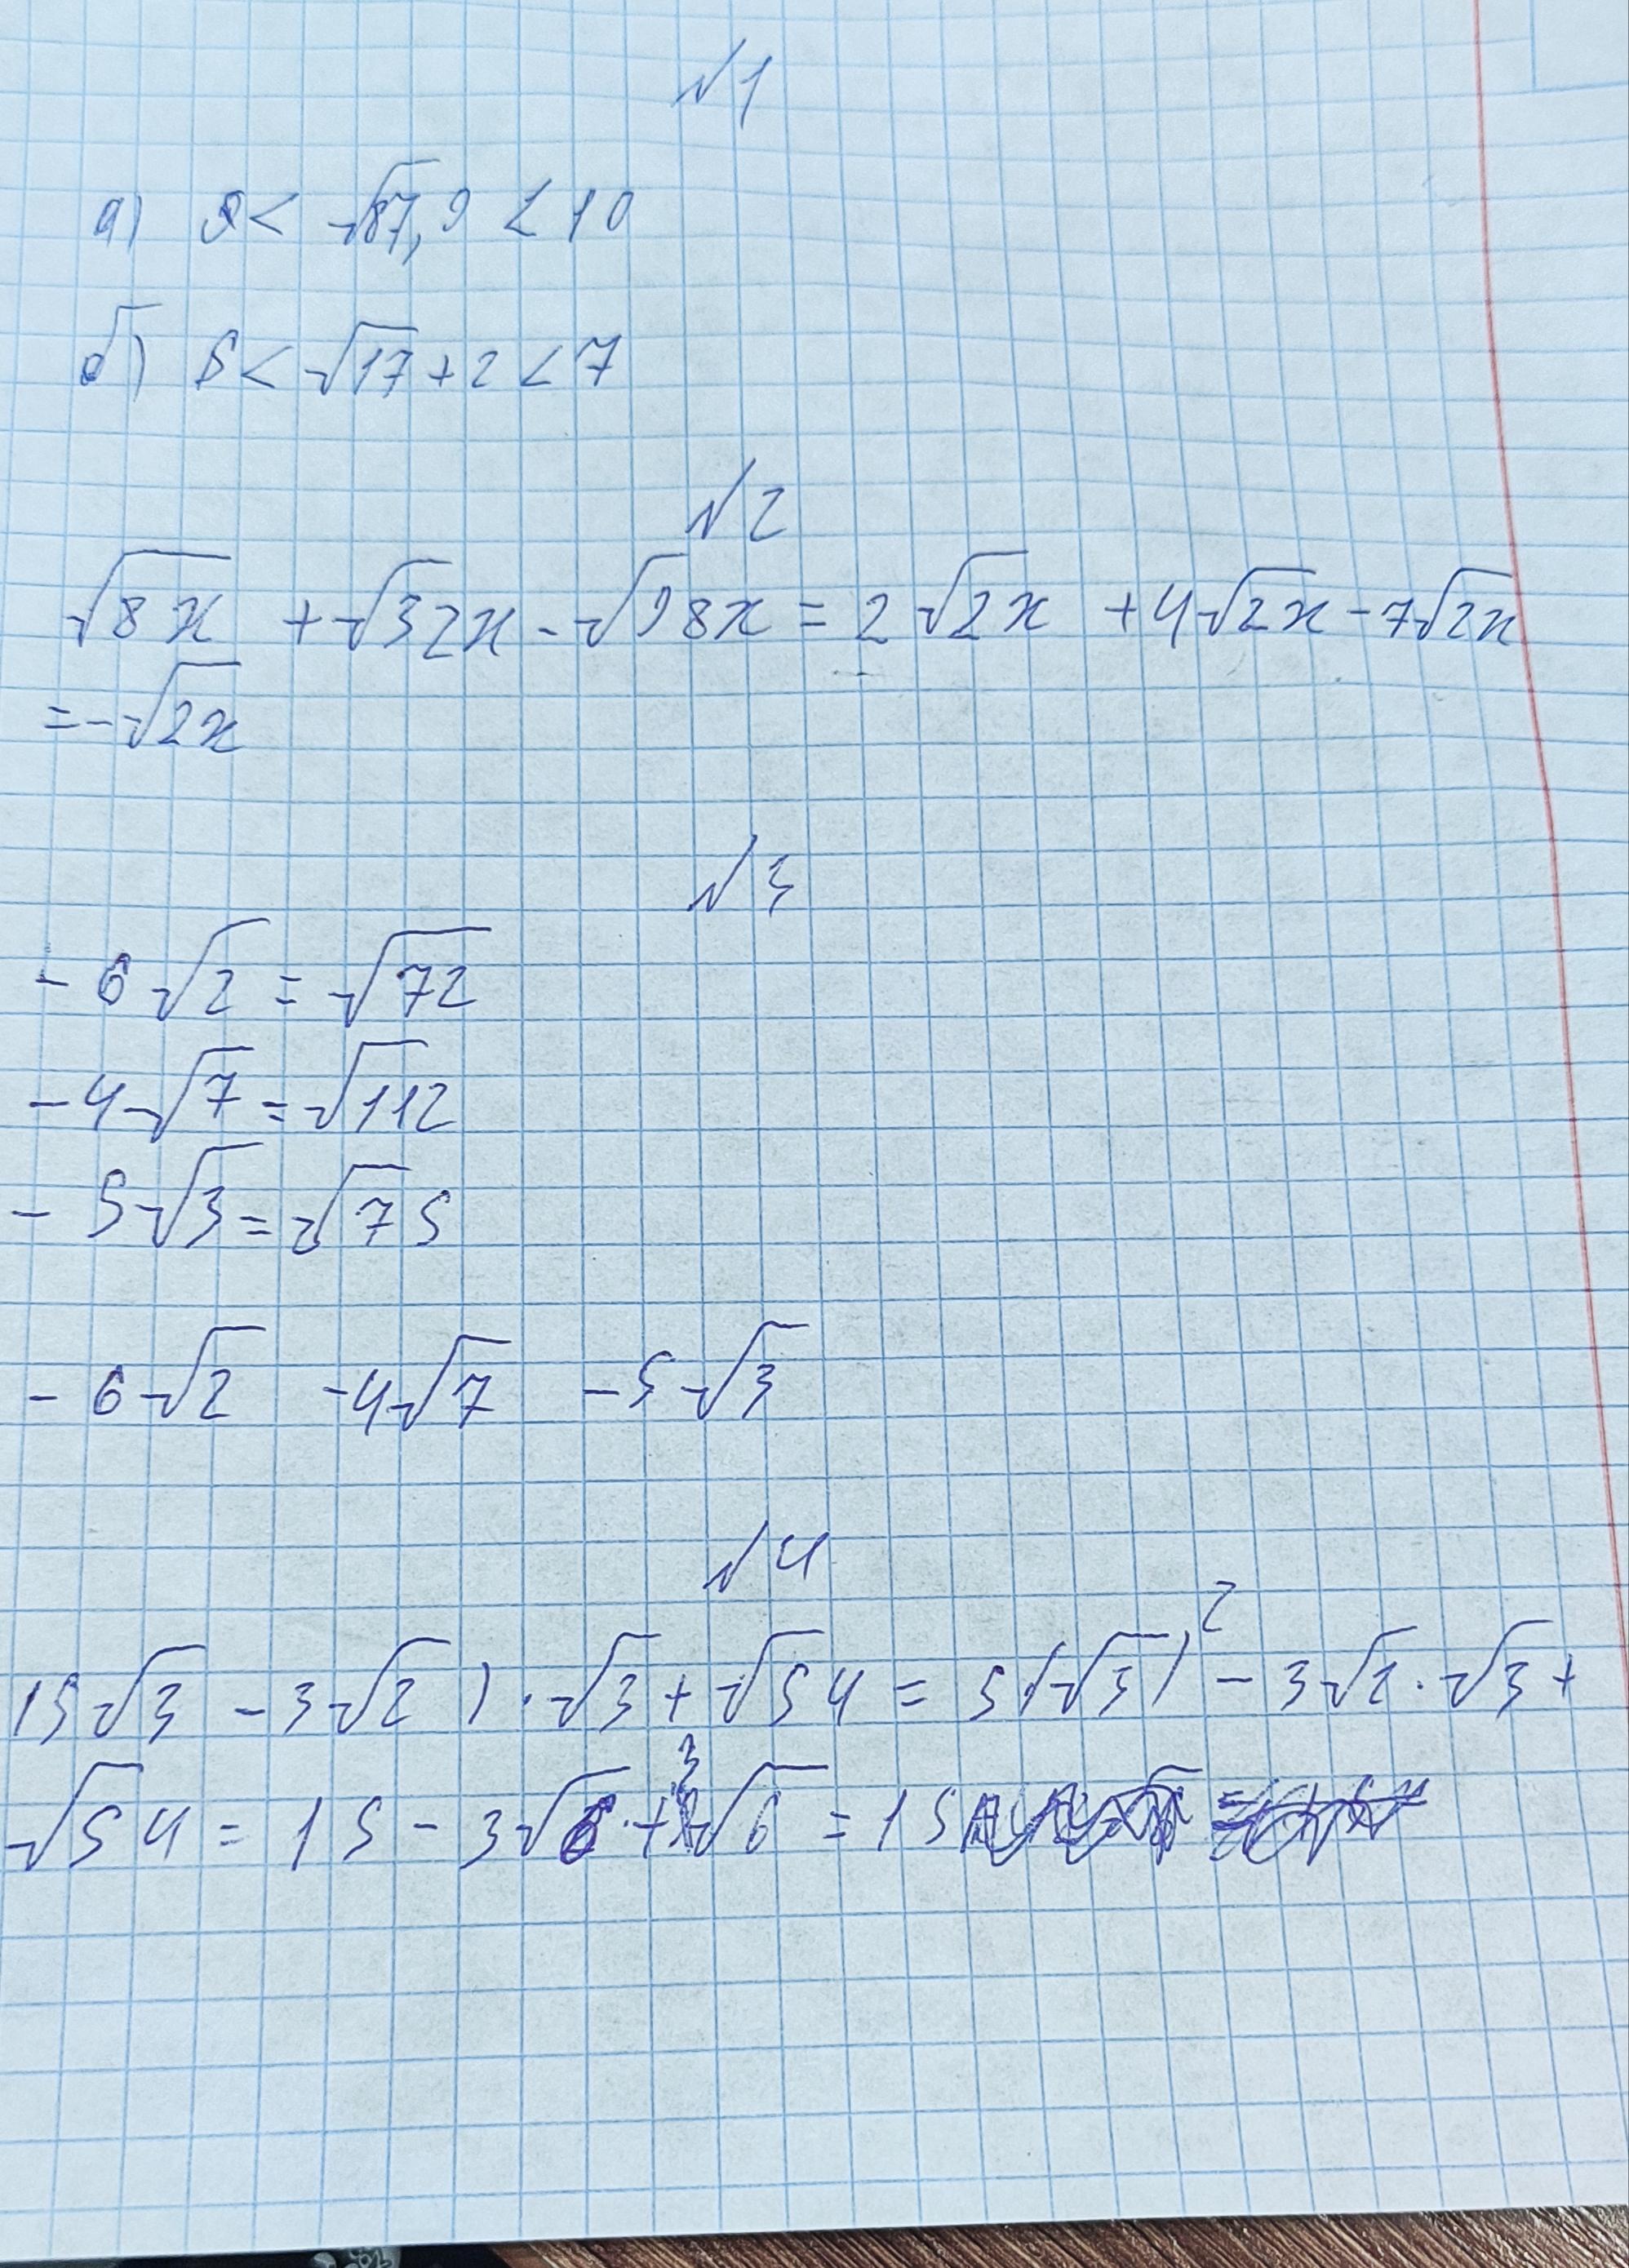 №1
а) 9 < √87,9 < 10
б) 6 < √17 + 2 < 7
№2
√8x + √32x - √98x = 2√2x + 4√2x - 7√2x
= -√2x
№3
- 6√2 = √72
- 4√7 = √112
- 5√3 = √75
- 6√2 - 4√7 - 5√3
№4
(5√3 - 3√2) · √3 + √54 = 5·(√3)² - 3√2 · √3 +
√54 = 15 - 3√6 + 3√6 = 15